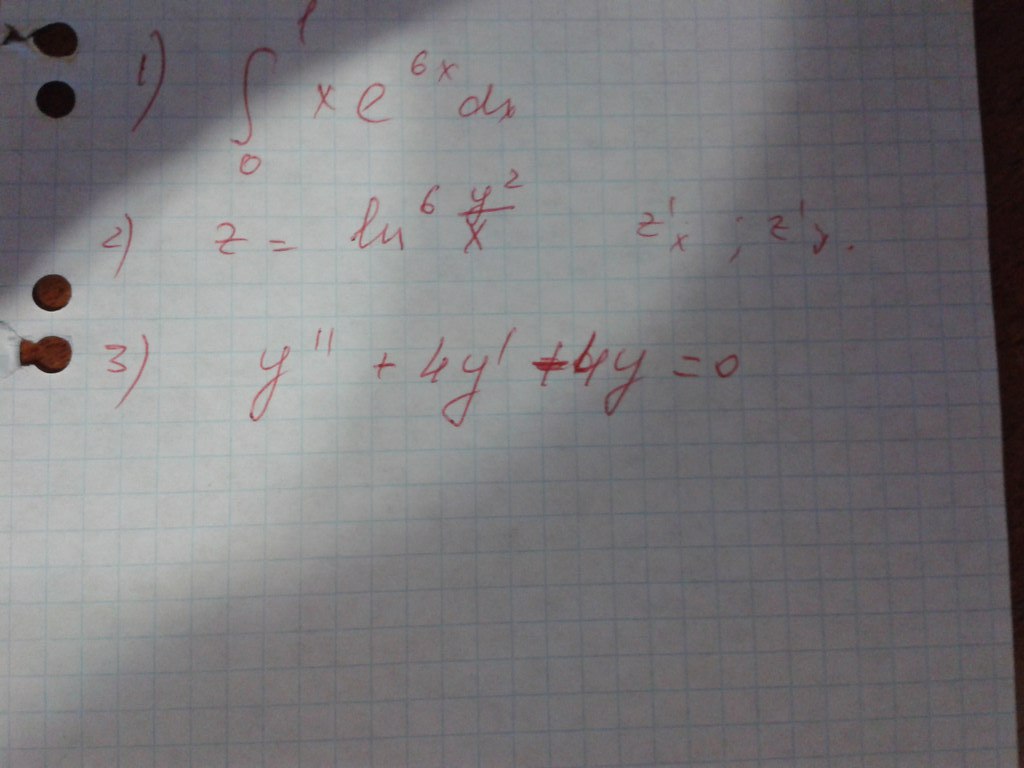 1) ∫₀¹ x e^{6x} dx
2) z = ln⁶ y²/x z'ₓ ; z'ᵧ.
3) y'' + 4y' + 4y = 0